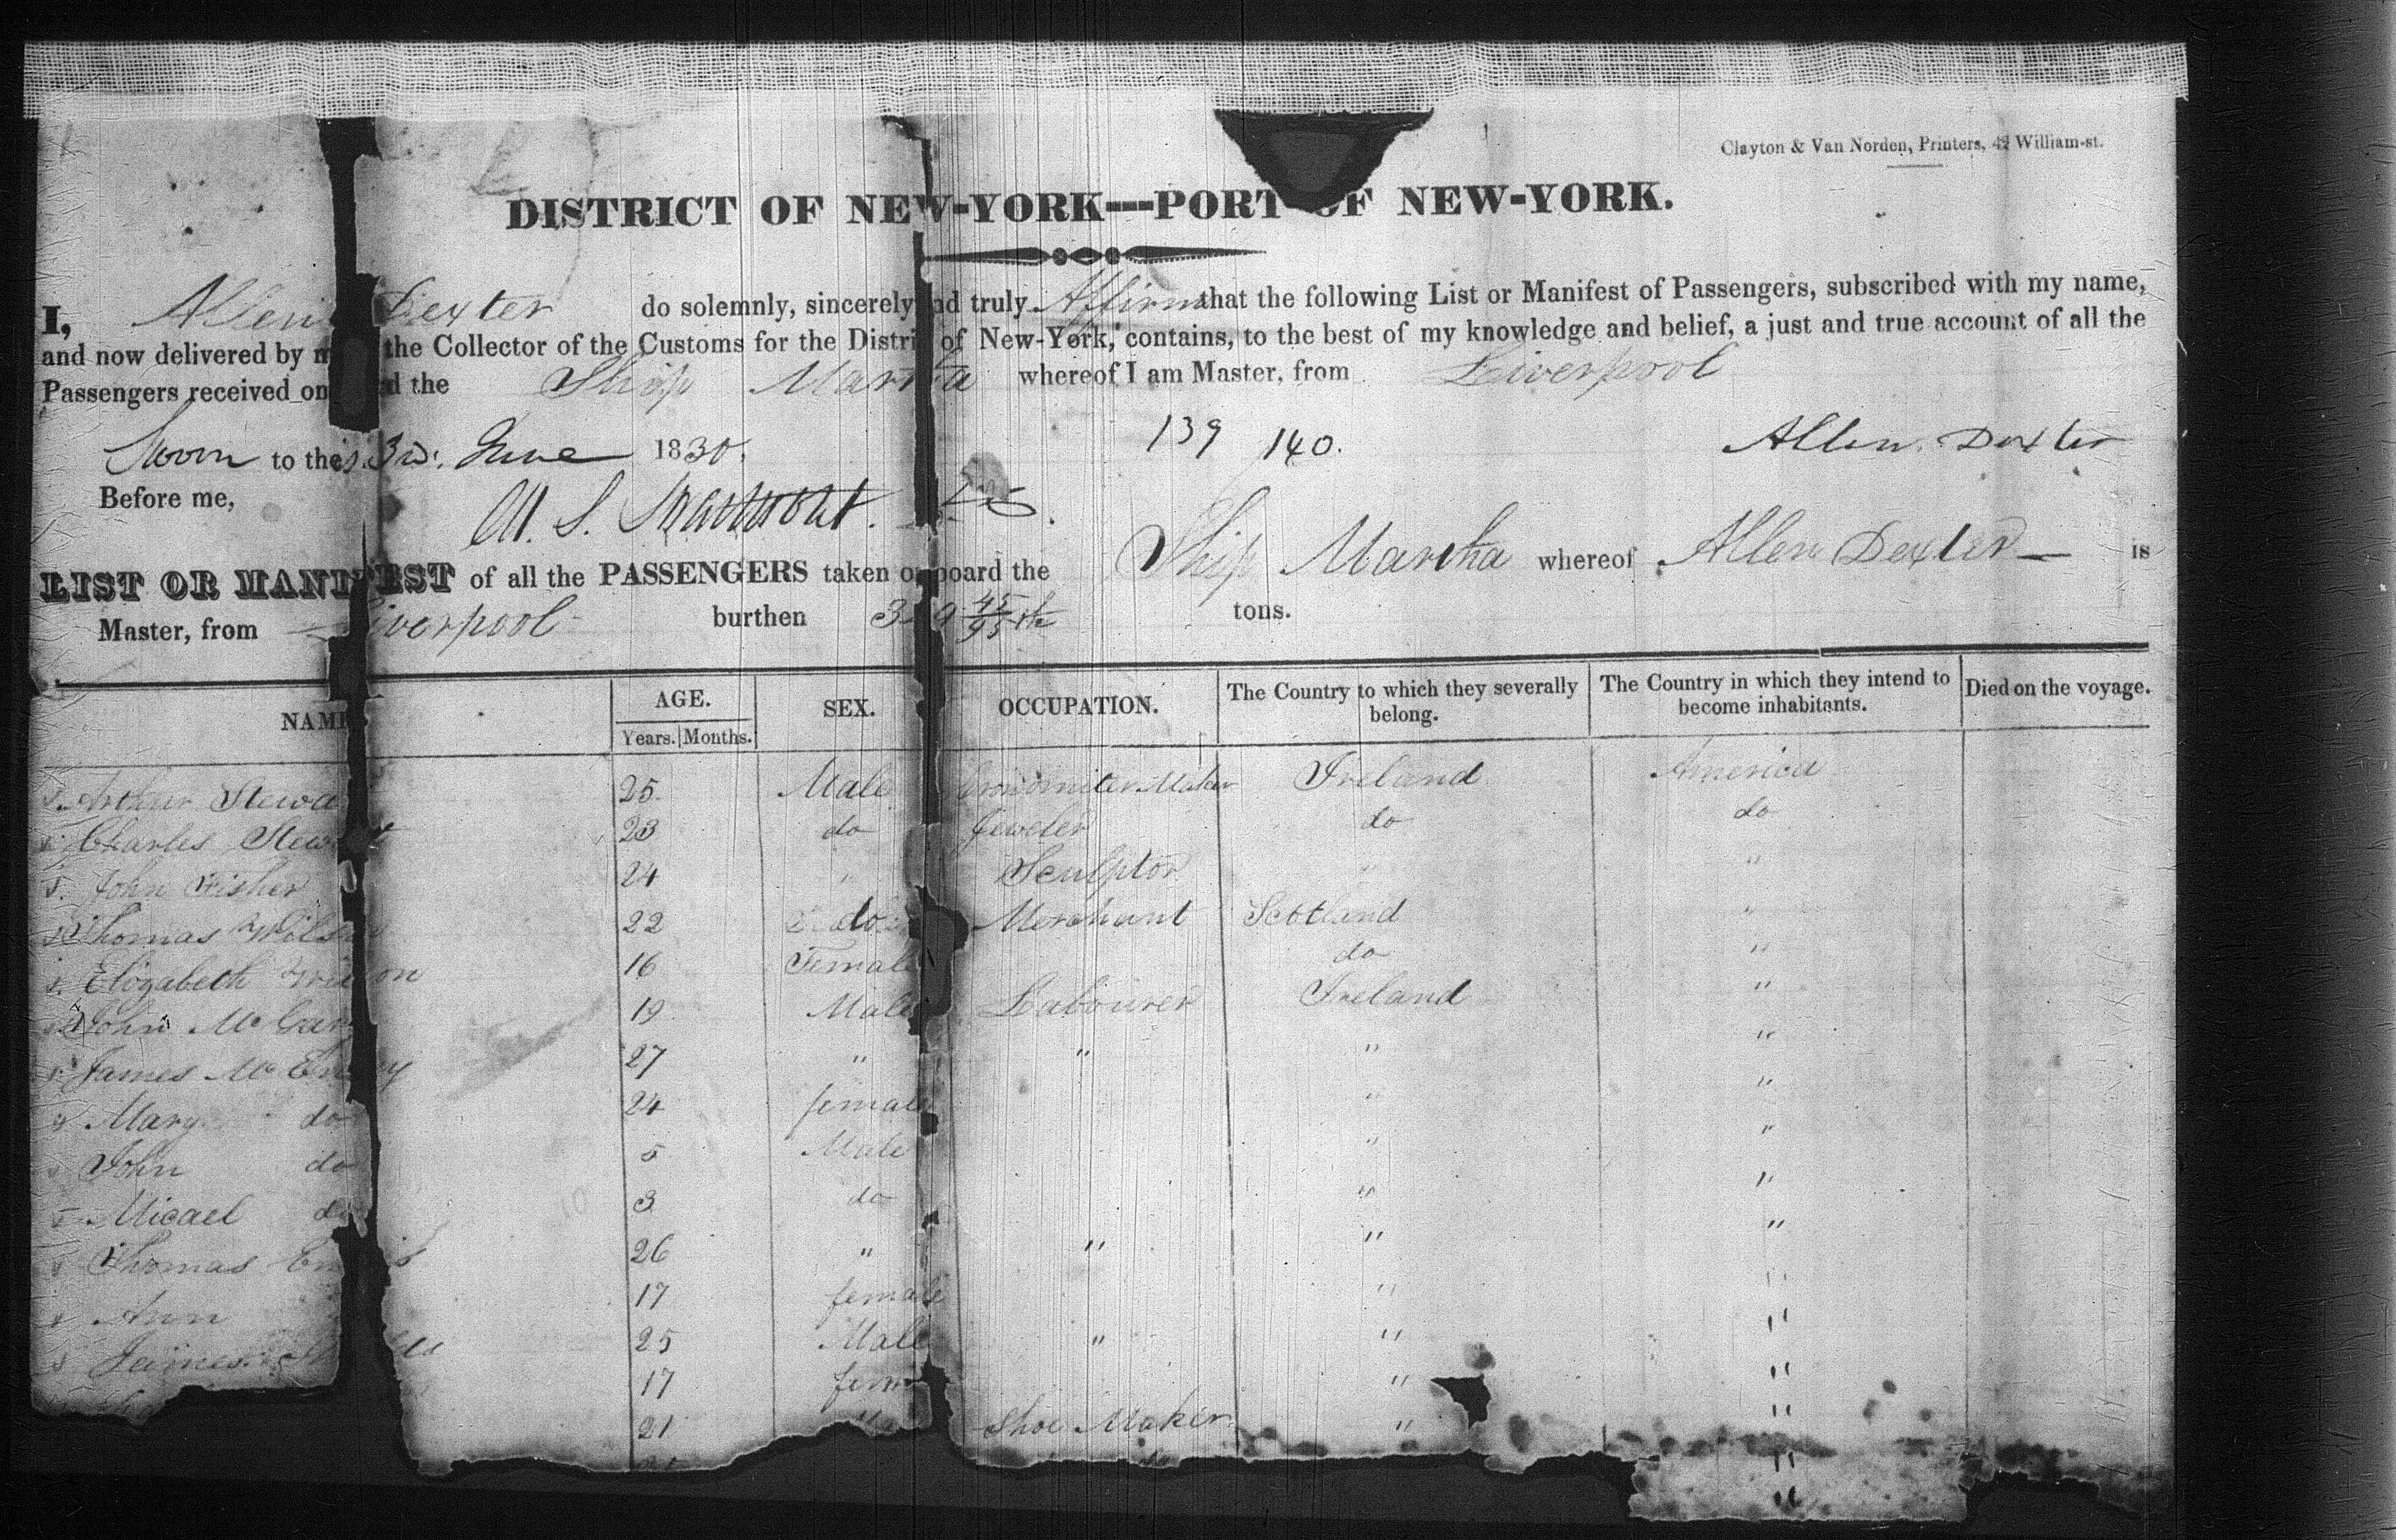 Clayton & Van Norden, Printers, 42 William-st.
DISTRICT OF NEW-YORK—PORT OF NEW-YORK.
I, Allen Dexter do solemnly, sincerely and truly Affirm that the following List or Manifest of Passengers, subscribed with my name,
and now delivered by m the Collector of the Customs for the Distri of New-York, contains, to the best of my knowledge and belief, a just and true account of all the
Passengers received on d the Ship Martha whereof I am Master, from Liverpool
Sworn to this 3d. June 1830.
139 140.
Allen Dexter
Before me,
M. S.
LIST OR MANIFEST of all the PASSENGERS taken on board the Ship Martha whereof Allen Dexter is
Master, from Liverpool burthen 3 9 45/95 tons.
NAME AGE. SEX. OCCUPATION. The Country to which they severally belong. The Country in which they intend to become inhabitants. Died on the voyage.
Years. Months.
Arthur Stewa 25 Male Cronomiter Maker Ireland America
Charles Stewart 23 do Jeweler do do
John Fisher 24 " Sculptor " "
Thomas Wilson 22 do Merchant Scotland "
Elizabeth Wilson 16 Female do "
John Mc 19 Male Labourer Ireland "
James Mc 27 " " " "
Mary do 24 female " "
John do 5 Male " "
Micael do 3 do " "
Thomas En 26 " " " "
Ann 17 female " "
James 25 Male " " "
17 fem " "
21 Male Shoe Maker " "
do "
"